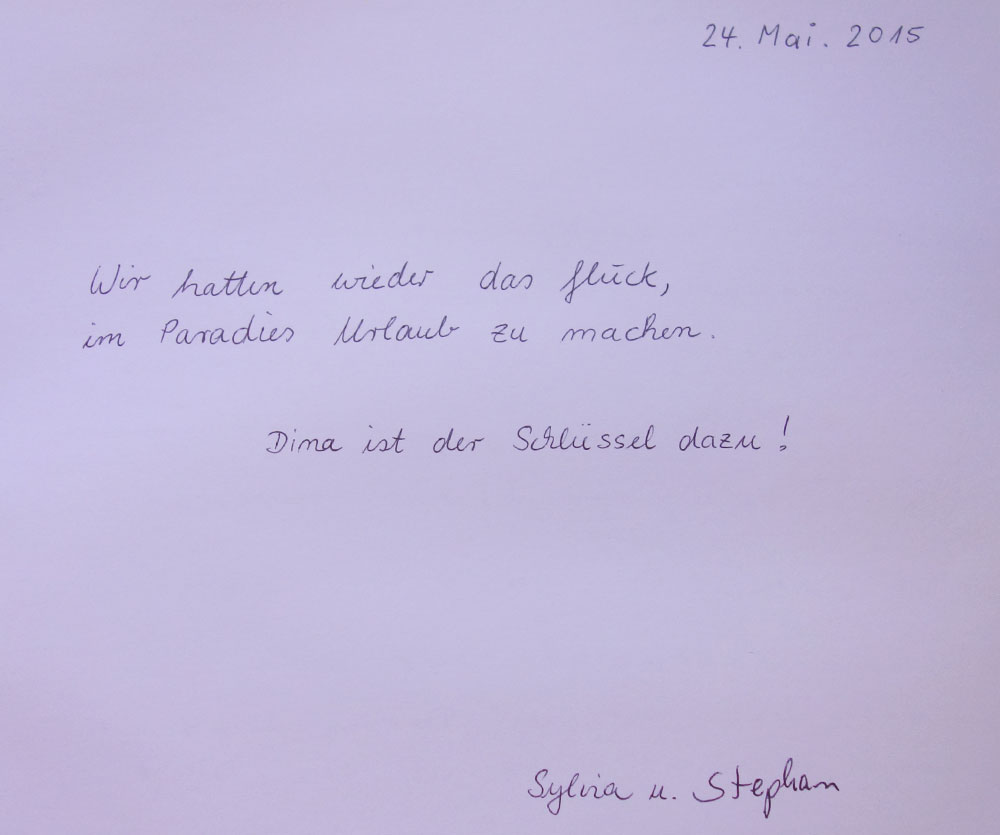 24. Mai. 2015
Wir hatten wieder das Glück,
im Paradies Urlaub zu machen.
Dima ist der Schlüssel dazu!
Sylvia u. Stephan